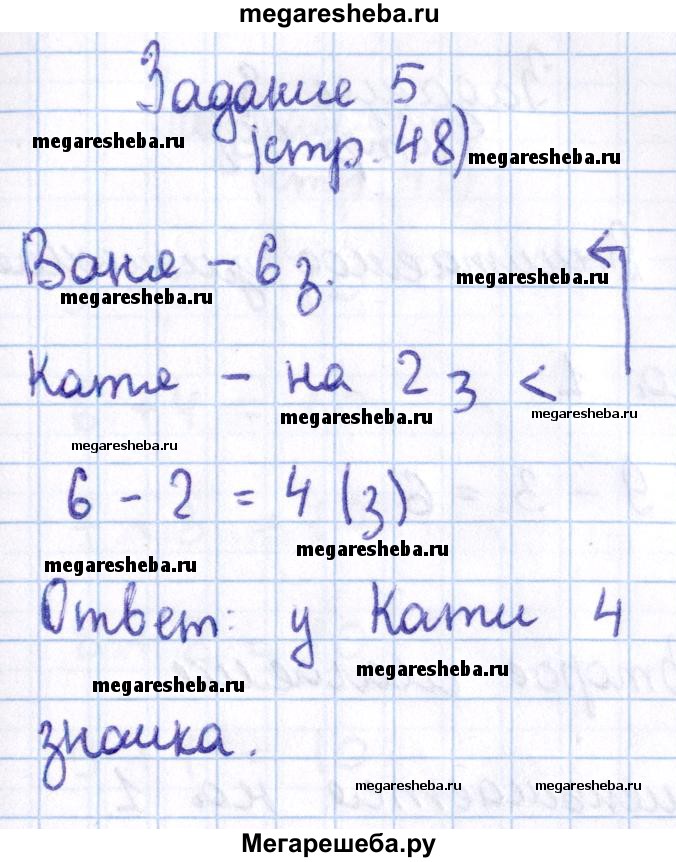 megaresheba.ru
Задание 5
megaresheba.ru (стр. 48) megaresheba.ru
Ваня – 6 з.
megaresheba.ru megaresheba.ru
Катя – на 2 з <
megaresheba.ru megaresheba.ru
megaresheba.ru
6 – 2 = 4 (з)
megaresheba.ru
megaresheba.ru
Ответ: у Кати 4
megaresheba.ru
megaresheba.ru
значка.
megaresheba.ru megaresheba.ru
Мегарешеба.ру